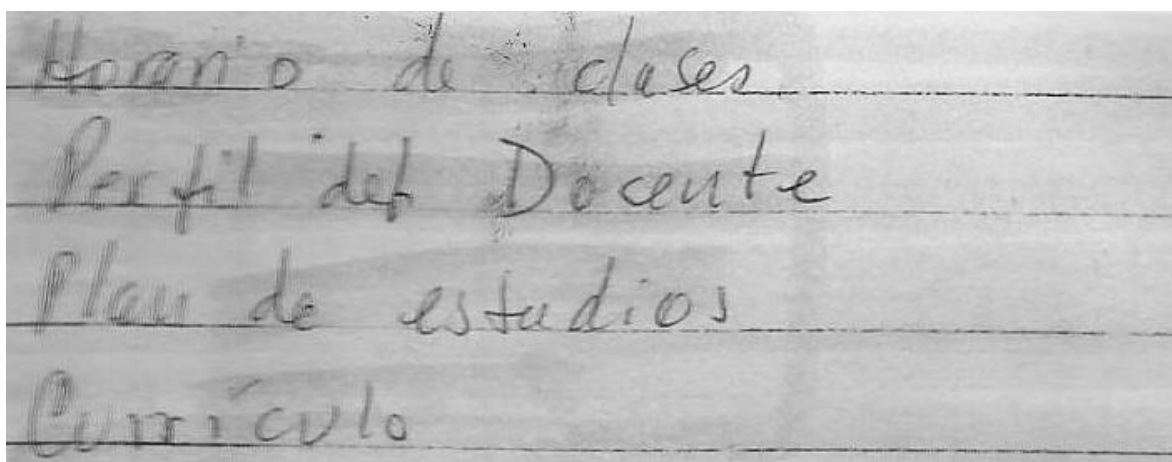 Horario de clases
Perfil del Docente
Plan de estudios
Currículo